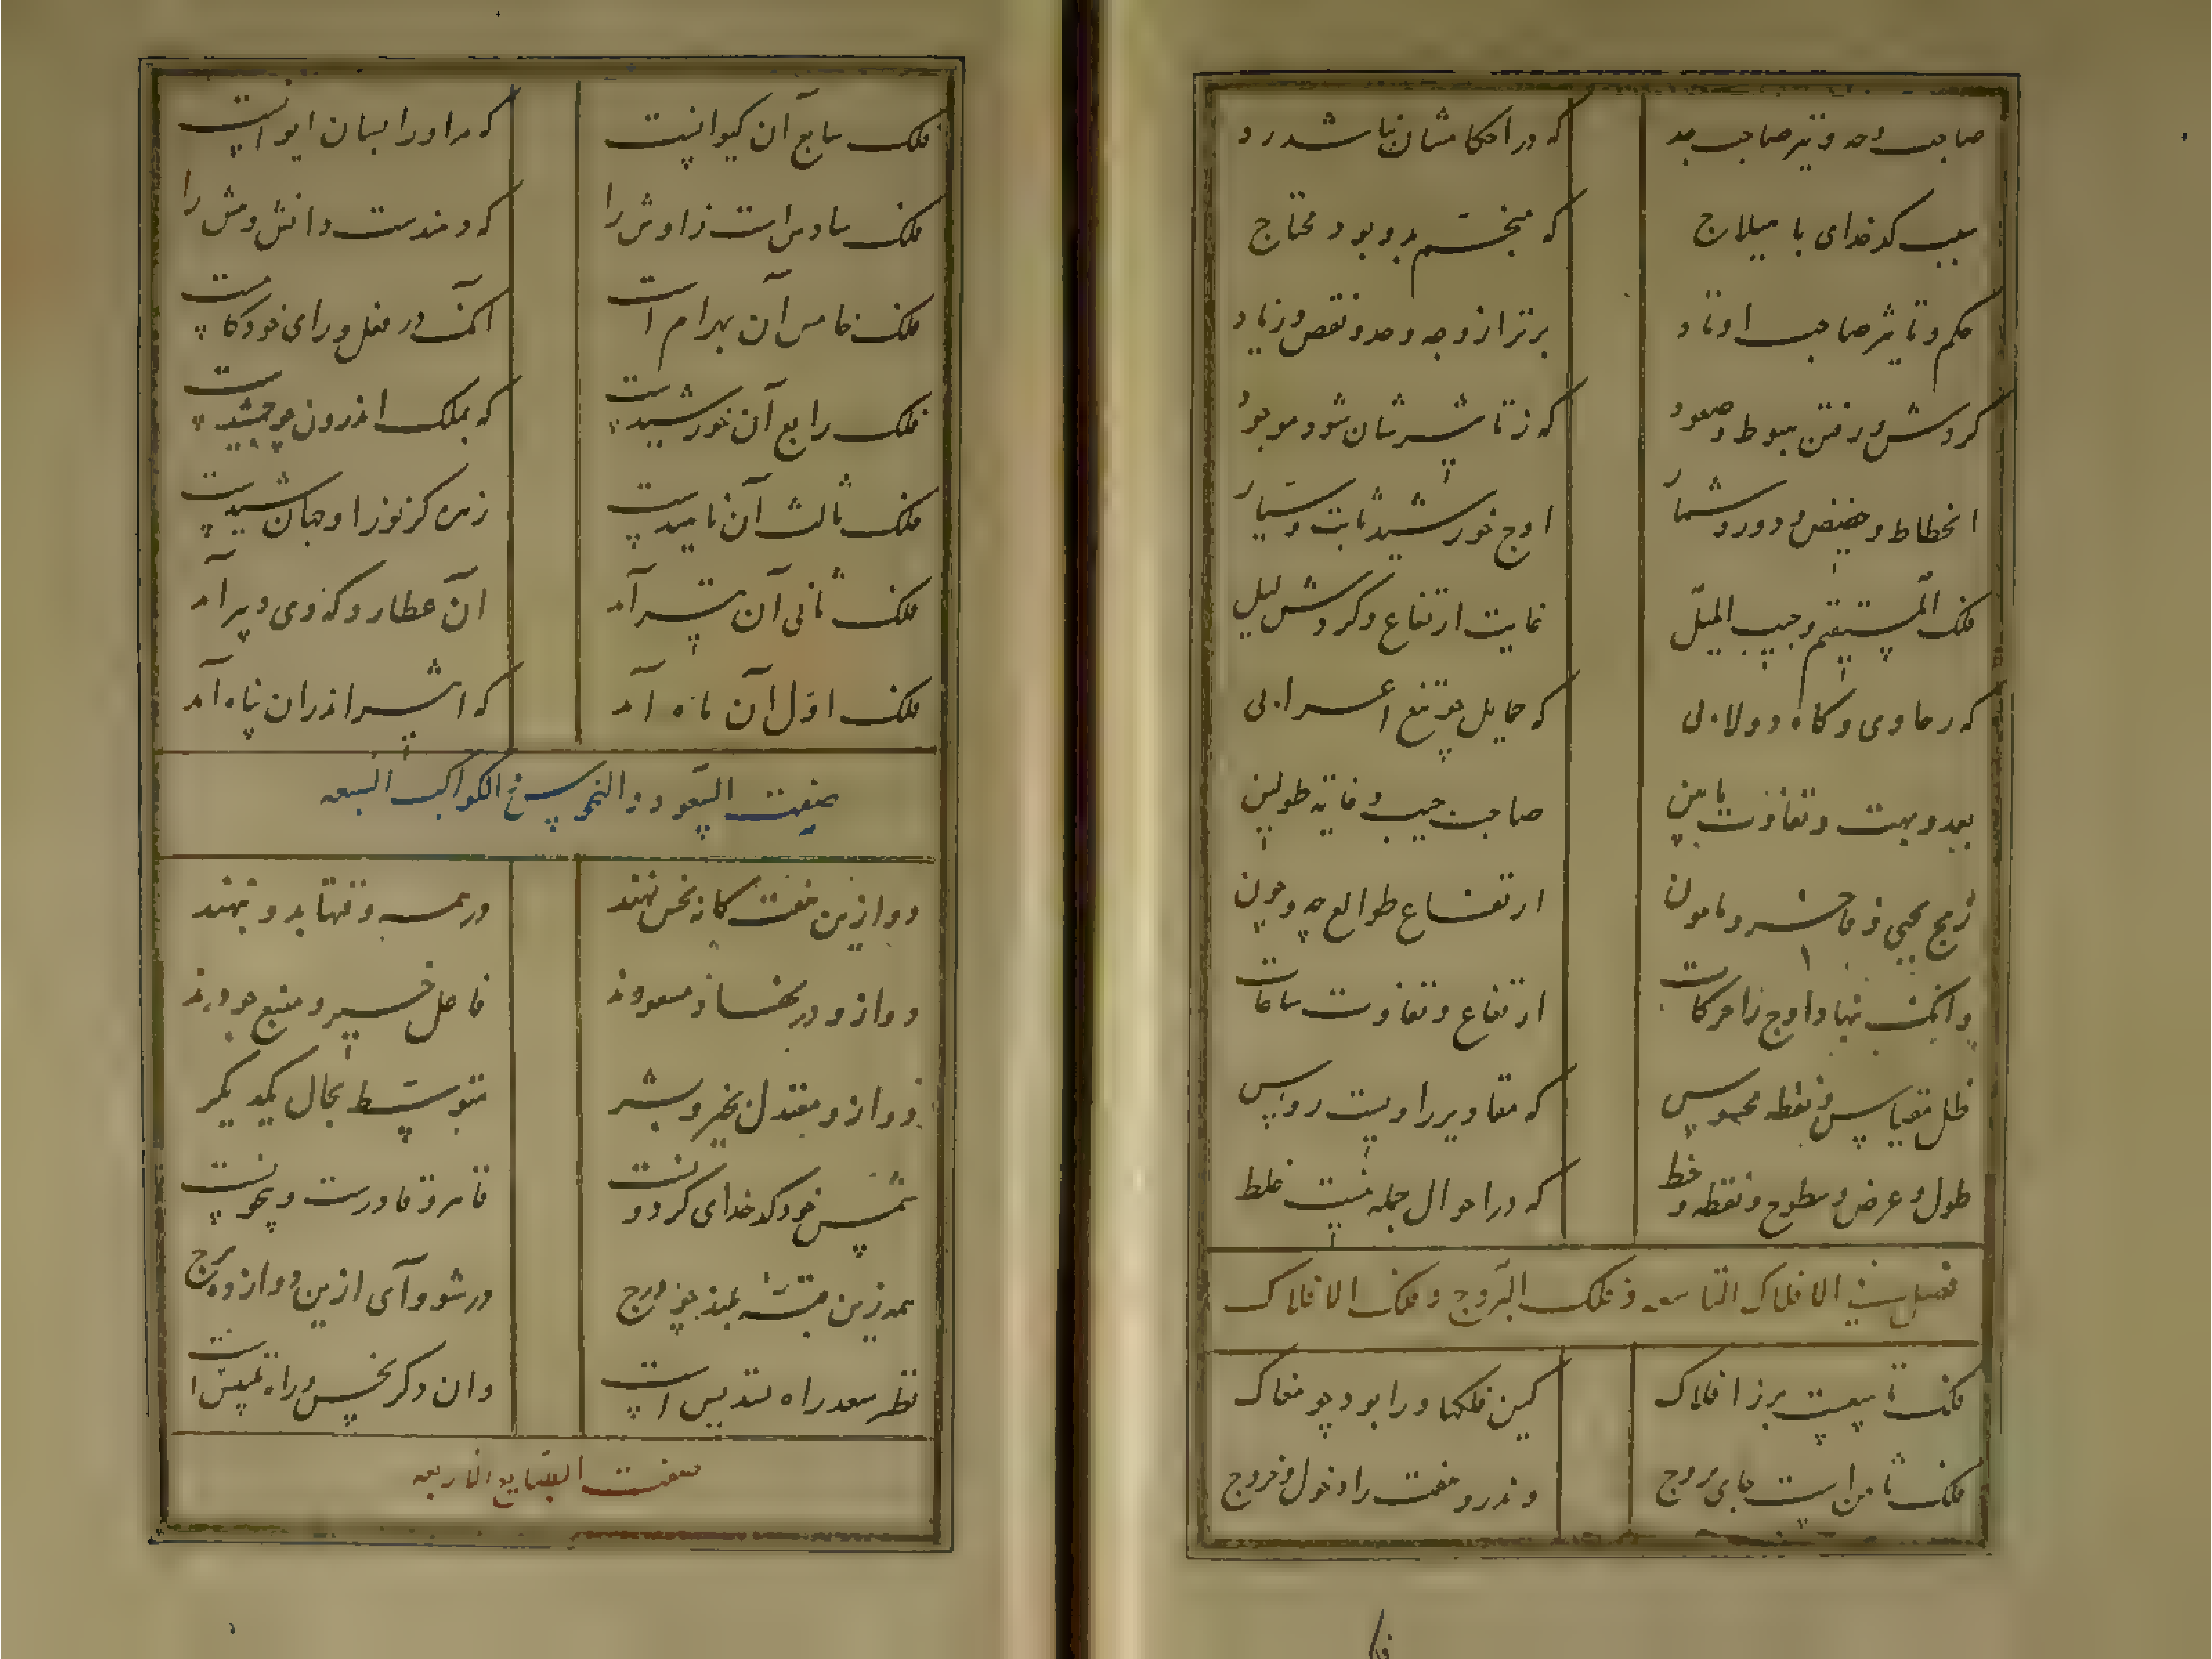 صاحب وجه و نیز صاحب حد که در احکامشان نباشد رد
سبب کدخدای با هیلاج که منجم بدو بود محتاج
حکم و تاثیر صاحب اوتاد برتر از وجه و حد و نقص و زیاد
گردش و رفتن هبوط و صعود که ز تاثیرشان شود موجود
انحطاط و حضیض و دور و شمار اوج خورشید ثابت و سیار
فلک المستقیم و جیب المیل غایت ارتفاع و گردش لیل
که رحاوی و گاه دولابی که حمایل چو تیغ اعرابی
بعد و بهت و تفاوت مابین صاحب جیب و غایه طولین
زیج یحیی و فاخر و مامون ارتفاع طوالع چه و چون
وانک بنهاد اوج را حرکات ارتفاع و تفاوت ساعات
ظل مقیاس و نقطه محسوس که مقادیر راویست رووس
طول و عرض و سطوح و نقطه و خط که در احوال جمله نیست غلط
فصل فی الافلاک التاسعه و فلک البروج و فلک الافلاک
فلک تاسعست برز افلاک کین فلکها ورا بود چو مغاک
فلک ثامن است جای بروج وندرو هفت را دخول و خروج
فلک سابع آن کیوانست که مر او را بسان ایوانست
فلک سادس است زاوش را که دهندست دانش و هش را
فلک خامس آن بهرام است آنک در فعل و رای خودکامست
فلک رابع آن خورشیدست که بملک اندرون چو جمشیدست
فلک ثالث آن ناهیدست زهره کز نور او جهان شیدست
فلک ثانی آن تیر آمد آن عطارد که وی دبیر آمد
فلک اول آن ماه آمد که اثیر اندران پناه آمد
صفت السعود و النحوس فی الکواکب السبعه
دو ازین هفت گانه نحس نهند در همه وقتها بد و نهند
دو ازو در نهاد مسعودند فاعل خیر و منبع جودند
دو ازو معتدل بخیر و بشر متوسط بحال یکدیگر
شمس خود کدخدای گردونست قاهر و قادرست و بیچونست
همه زین هفت بلند چو درج در شد و آمد ازین دوازده برج
نظر سعد راه تسدیس است وان دگر نحس و راه تلبیس است
صفت الطبایع الاربعه